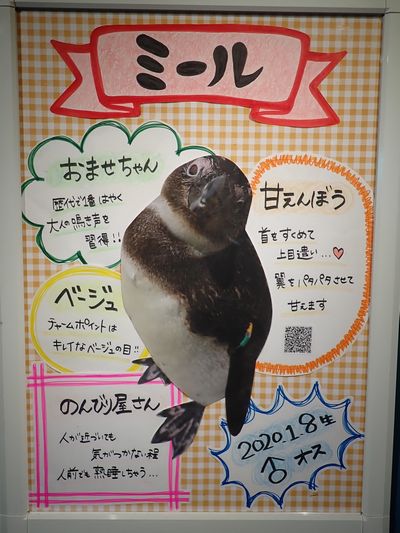 ミール
おませちゃん
歴代で1番はやく
大人の鳴き声を
習得!!
甘えんぼう
首をすくめて
上目遣い…♡
翼をパタパタさせて
甘えます
ベージュ
チャームポイントは
キレイなベージュの目!!
のんびり屋さん
人が近づいても
気がつかない程
人前でも熟睡しちゃう…
2020.1.8生
♂オス